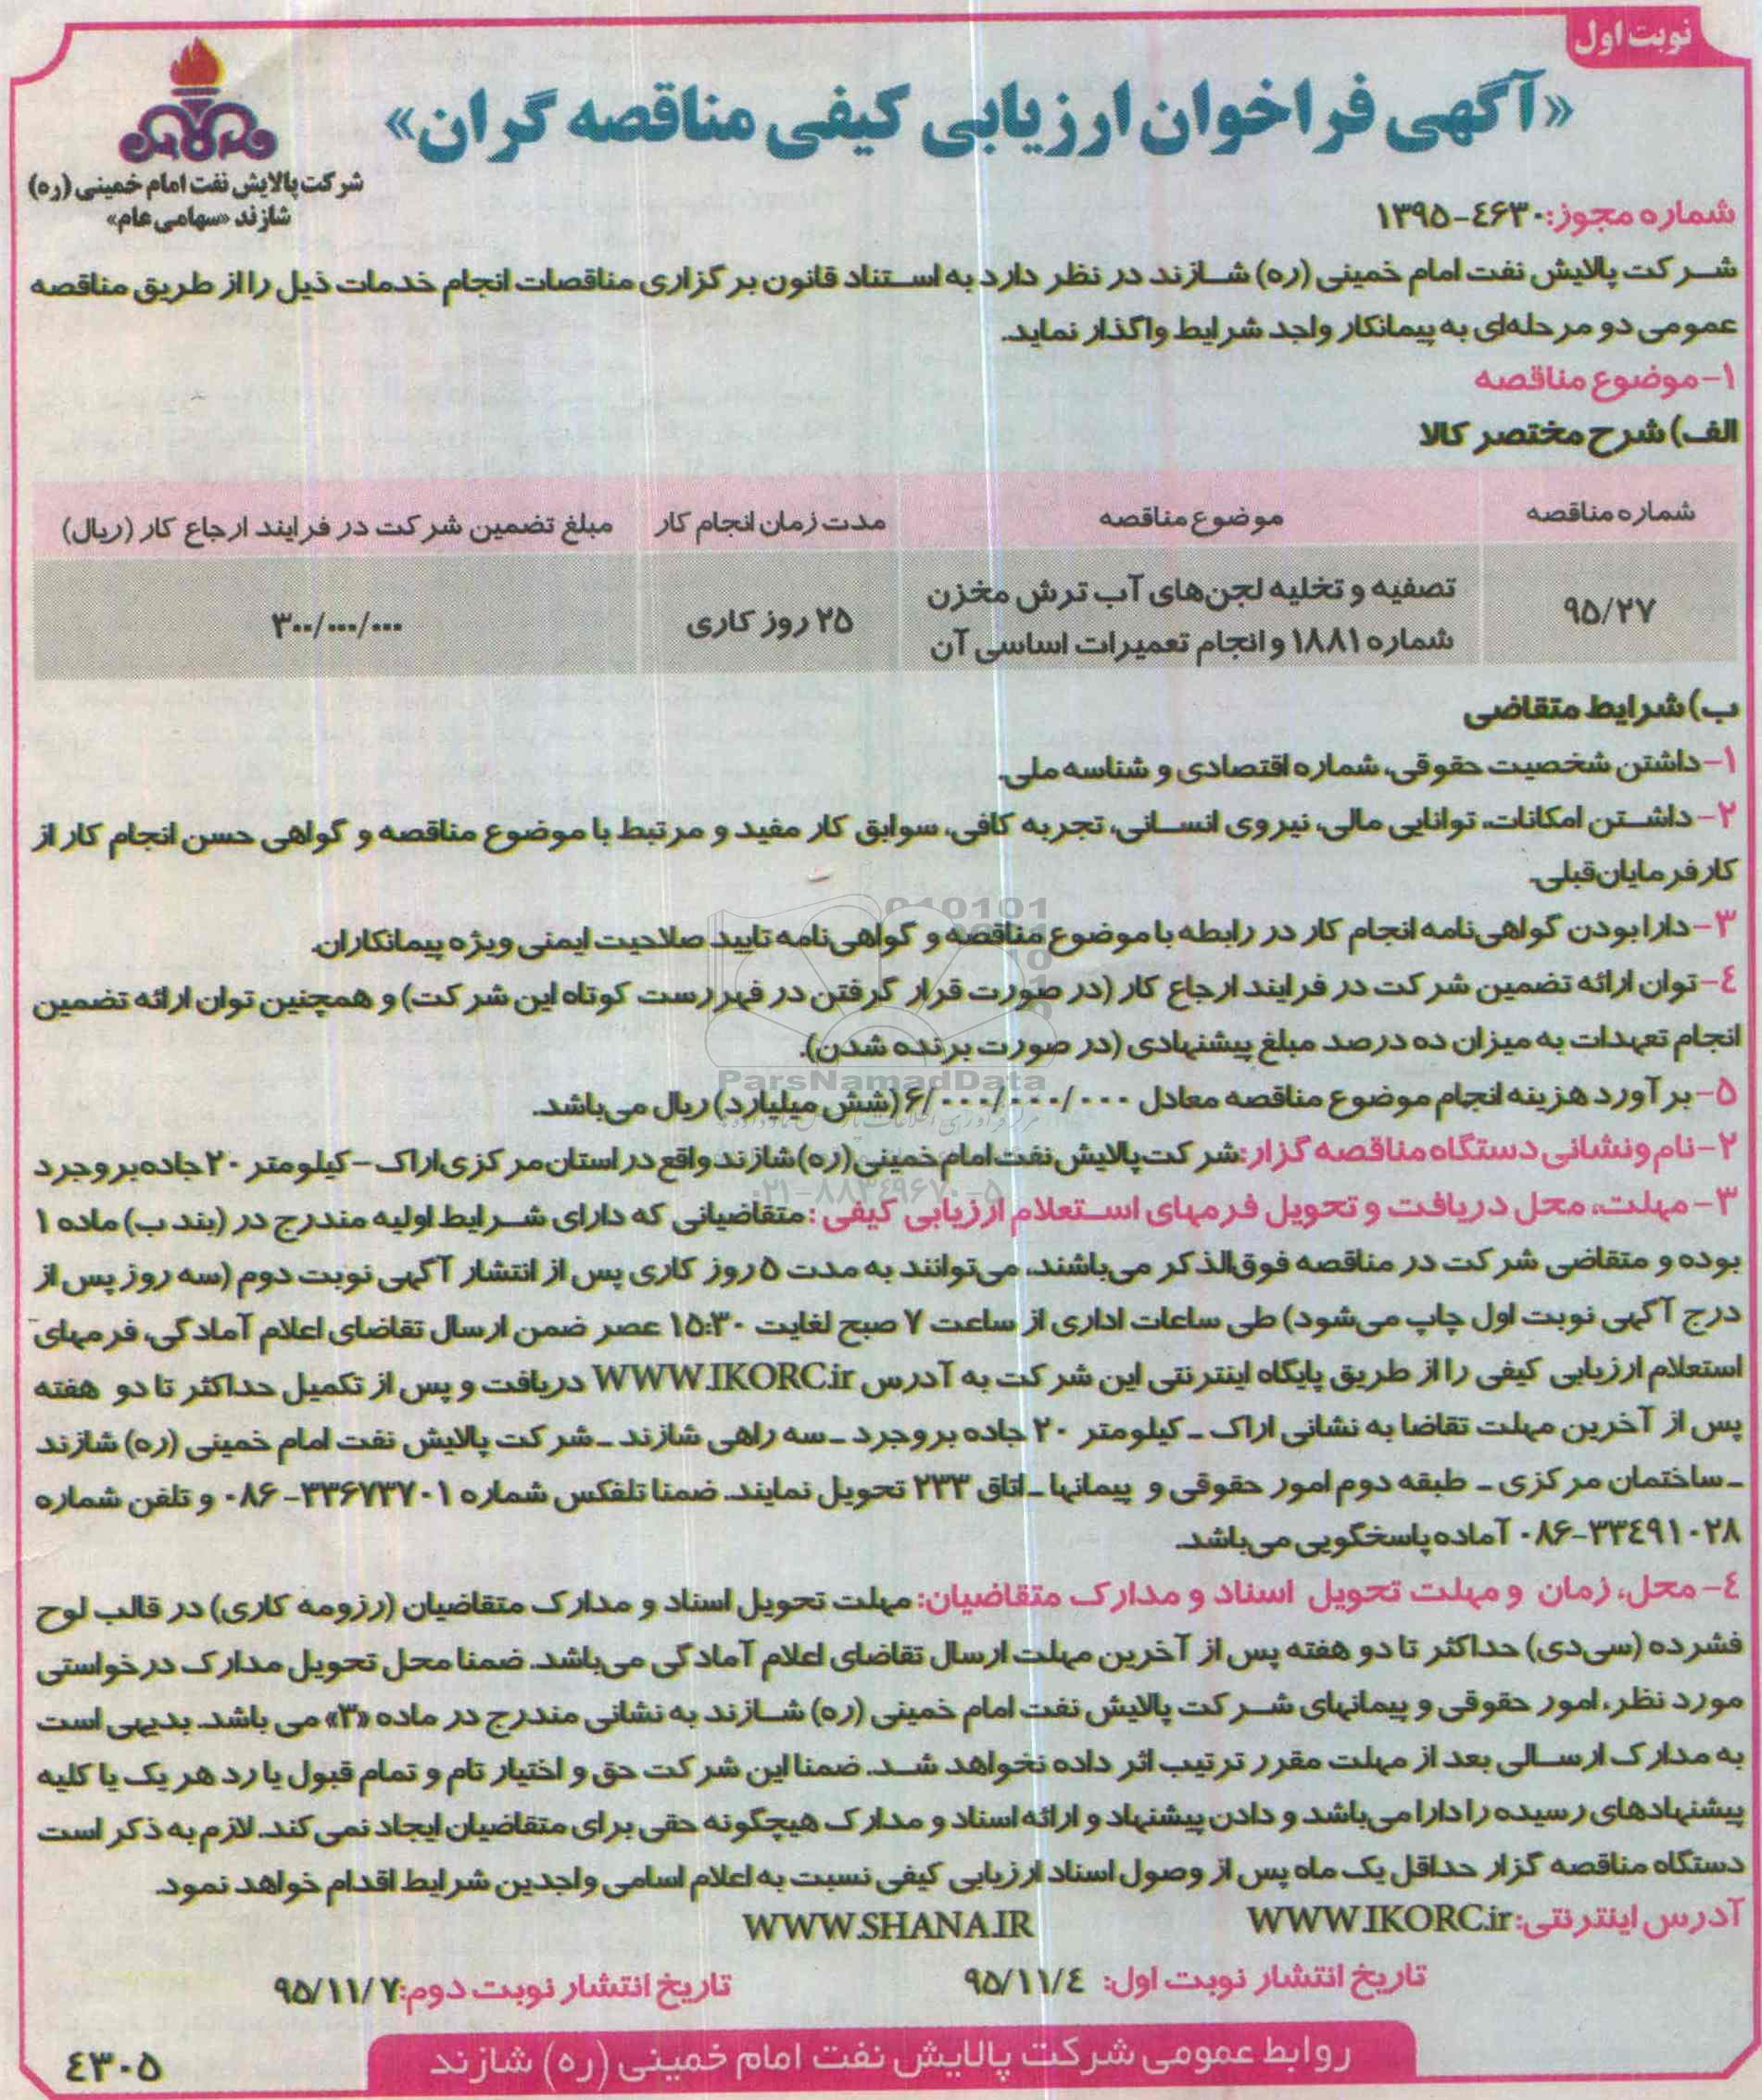 نوبت اول
«آگهی فراخوان ارزیابی کیفی مناقصه گران»
شرکت پالایش نفت امام خمینی (ره)
شازند «سهامی عام»
شماره مجوز: ۱۳۹۵-۴۶۳۰
شرکت پالایش نفت امام خمینی (ره) شازند در نظر دارد به استناد قانون برگزاری مناقصات انجام خدمات ذیل را از طریق مناقصه
عمومی دو مرحله‌ای به پیمانکار واجد شرایط واگذار نماید.
۱-موضوع مناقصه
الف) شرح مختصر کالا
شماره مناقصه موضوع مناقصه مدت زمان انجام کار مبلغ تضمین شرکت در فرایند ارجاع کار (ریال)
۹۵/۲۷ تصفیه و تخلیه لجن‌های آب ترش مخزن شماره ۱۸۸۱ و انجام تعمیرات اساسی آن ۲۵ روز کاری ۳۰۰/۰۰۰/۰۰۰
ب) شرایط متقاضی
۱-داشتن شخصیت حقوقی، شماره اقتصادی و شناسه ملی.
۲-داشتن امکانات، توانایی مالی، نیروی انسانی، تجربه کافی، سوابق کار مفید و مرتبط با موضوع مناقصه و گواهی حسن انجام کار از
کارفرمایان قبلی.
۳-دارا بودن گواهی‌نامه انجام کار در رابطه با موضوع مناقصه و گواهی‌نامه تایید صلاحیت ایمنی ویژه پیمانکاران.
۴-توان ارائه تضمین شرکت در فرایند ارجاع کار (در صورت قرار گرفتن در فهررست کوتاه این شرکت) و همچنین توان ارائه تضمین
انجام تعهدات به میزان ده درصد مبلغ پیشنهادی (در صورت برنده شدن).
ParsNamadData
۵-برآورد هزینه انجام موضوع مناقصه معادل ۶/۰۰۰/۰۰۰/۰۰۰ (شش میلیارد) ریال می‌باشد.
۲-نام ونشانی دستگاه مناقصه گزار: شرکت پالایش نفت امام خمینی (ره) شازند واقع در استان مرکزی اراک -کیلومتر ۲۰ جاده بروجرد
۰۲۱-۸۸۳۴۹۶۷۰-۵
۳-مهلت، محل دریافت و تحویل فرمهای استعلام ارزیابی کیفی: متقاضیانی که دارای شرایط اولیه مندرج در (بند ب) ماده ۱
بوده و متقاضی شرکت در مناقصه فوق‌الذکر می‌باشند، می‌توانند به مدت ۵ روز کاری پس از انتشار آگهی نوبت دوم (سه روز پس از
درج آگهی نوبت اول چاپ می‌شود) طی ساعات اداری از ساعت ۷ صبح لغایت ۱۵:۳۰ عصر ضمن ارسال تقاضای اعلام آمادگی، فرمهای
استعلام ارزیابی کیفی را از طریق پایگاه اینترنتی این شرکت به آدرس WWW.IKORC.ir دریافت و پس از تکمیل حداکثر تا دو هفته
پس از آخرین مهلت تقاضا به نشانی اراک - کیلومتر ۲۰ جاده بروجرد - سه راهی شازند - شرکت پالایش نفت امام خمینی (ره) شازند
- ساختمان مرکزی - طبقه دوم امور حقوقی و پیمانها - اتاق ۲۳۳ تحویل نمایند. ضمنا تلفکس شماره ۳۳۶۷۳۷۰۱-۰۸۶ و تلفن شماره
۳۳۴۹۱۰۲۸-۰۸۶ آماده پاسخگویی می‌باشد.
۴-محل، زمان و مهلت تحویل اسناد و مدارک متقاضیان: مهلت تحویل اسناد و مدارک متقاضیان (رزومه کاری) در قالب لوح
فشرده (سی‌دی) حداکثر تا دو هفته پس از آخرین مهلت ارسال تقاضای اعلام آمادگی می‌باشد. ضمنا محل تحویل مدارک درخواستی
مورد نظر، امور حقوقی و پیمانهای شرکت پالایش نفت امام خمینی (ره) شازند به نشانی مندرج در ماده «۳» می باشد. بدیهی است
به مدارک ارسالی بعد از مهلت مقرر ترتیب اثر داده نخواهد شد. ضمنا این شرکت حق و اختیار تام و تمام قبول یا رد هر یک یا کلیه
پیشنهادهای رسیده را دارا می‌باشد و دادن پیشنهاد و ارائه اسناد و مدارک هیچگونه حقی برای متقاضیان ایجاد نمی کند. لازم به ذکر است
دستگاه مناقصه گزار حداقل یک ماه پس از وصول اسناد ارزیابی کیفی نسبت به اعلام اسامی واجدین شرایط اقدام خواهد نمود.
آدرس اینترنتی: WWW.IKORC.ir WWW.SHANA.IR
تاریخ انتشار نوبت اول: ۹۵/۱۱/۴ تاریخ انتشار نوبت دوم: ۹۵/۱۱/۷
روابط عمومی شرکت پالایش نفت امام خمینی (ره) شازند
۴۳۰۵